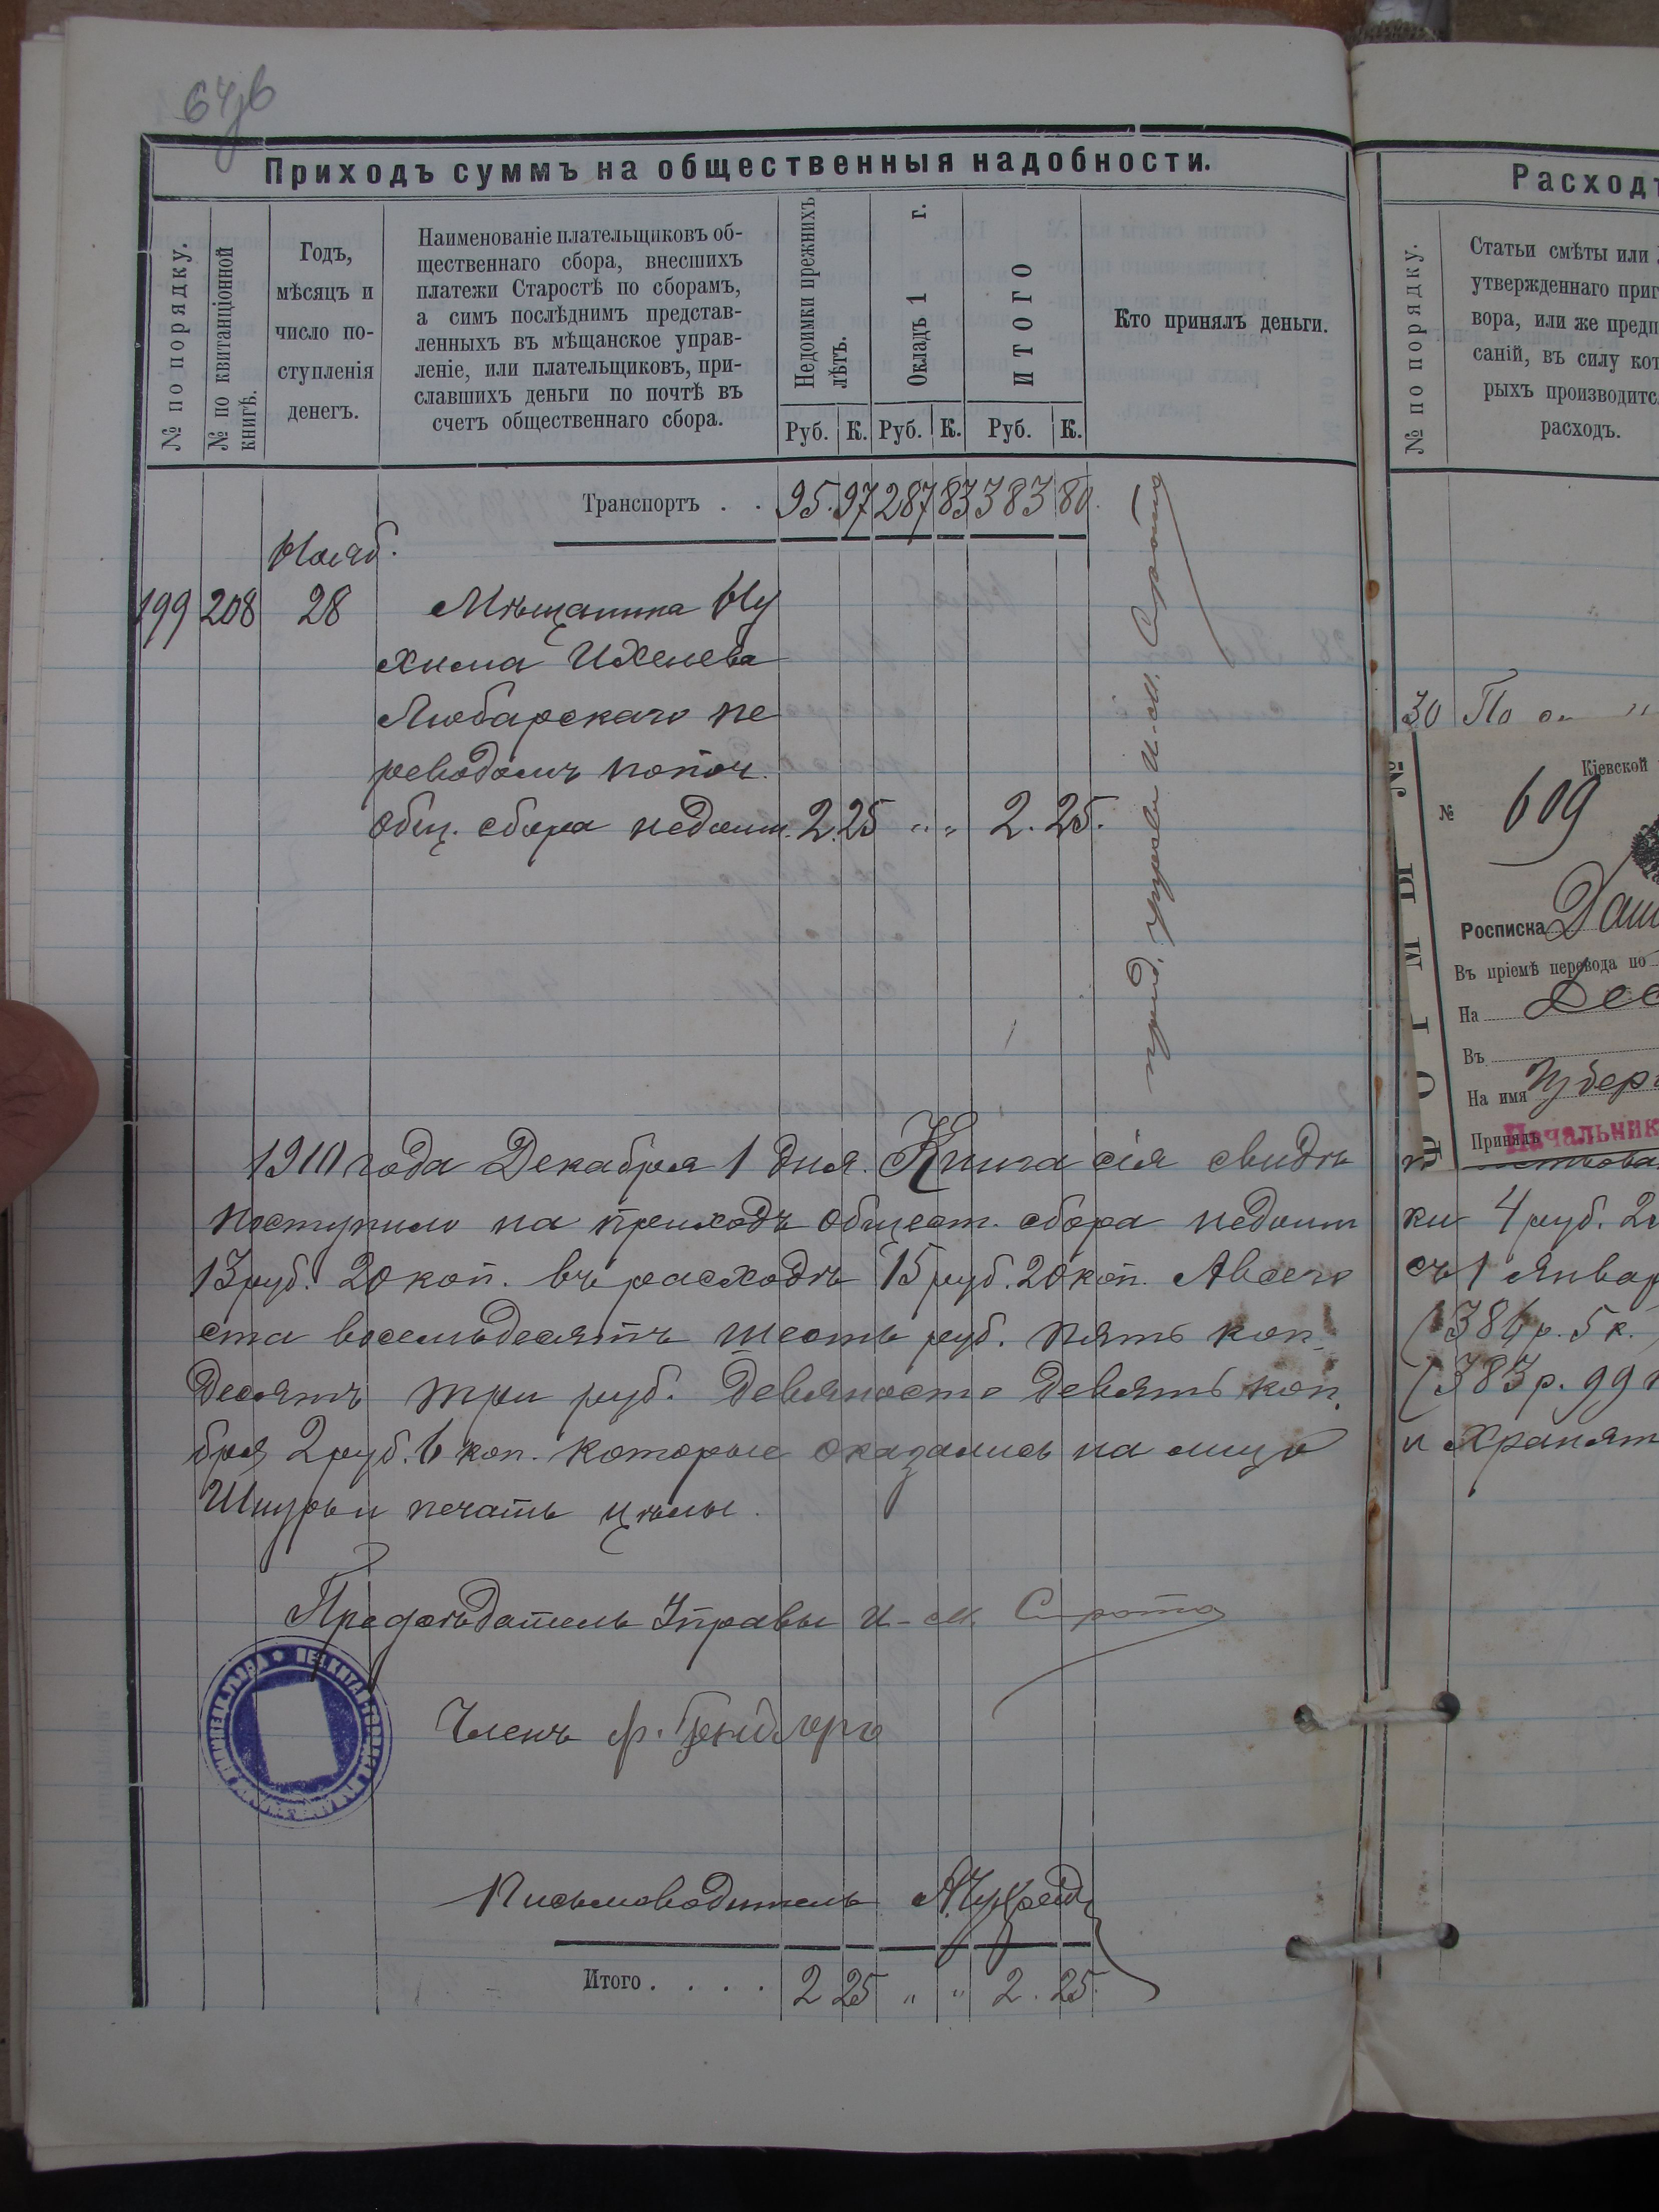 Приходъ суммъ на общественныя надобности.
№ по порядку.
№ по квитанціонной книгѣ.
Годъ,
мѣсяцъ и
число по-
ступленія
денегъ.
Наименованіе плательщиковъ об-
щественнаго сбора, внесшихъ
платежи Старостѣ по сборамъ,
а симъ послѣднимъ представ-
ленныхъ въ мѣщанское управ-
леніе, или плательщиковъ, при-
славшихъ деньги по почтѣ въ
счетъ общественнаго сбора.
Недоимки прежнихъ лѣтъ.
Окладъ 1 г.
ИТОГО
Кто принялъ деньги.
Руб. К. Руб. К. Руб. К.
Транспортъ . . 95. 97 287 83 383 80.
Нояб.
199 208 28 Мѣщанина Ну
хима Ихелева
Любарскаго пе
реводомъ по поч.
общ. сбора недоим. 2. 25 " " 2. 25.
пред. управы И-М. Сирота
1910 года Декабря 1 дня. Книга сія свидѣ
поступило на приходъ общест. сбора недоим
13 руб. 20 коп. въ расходѣ 15 руб. 20 коп. А всего
ста восемьдесятъ шесть руб. пять коп.
десятъ три руб. девяносто девять коп.
бря 2 руб. 6 коп. которые оказались на лицо
Шнуръ и печать цѣлы.
Предсѣдатель Управы И-М. Сирота
Членъ
Письмоводитель
Итого . . . . 2 25 " " 2. 25.
Расходъ
№ по порядку.
Статьи смѣты или
утвержденнаго приг
вора, или же предп
саній, въ силу кот
рыхъ производитс
расходъ.
30 По
Кіевской
№ 609
Росписка
Въ пріемѣ перевода по
На
Въ
На имя
Принялъ
Начальник
ки 4 руб. 2
съ 1 Январ
(386 р. 5 к.
(383 р. 99
и хранят